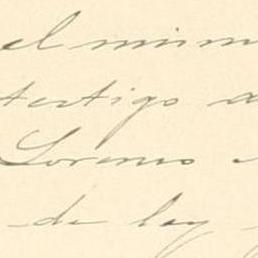 el mism
testigo a
Lorenzo
de ley